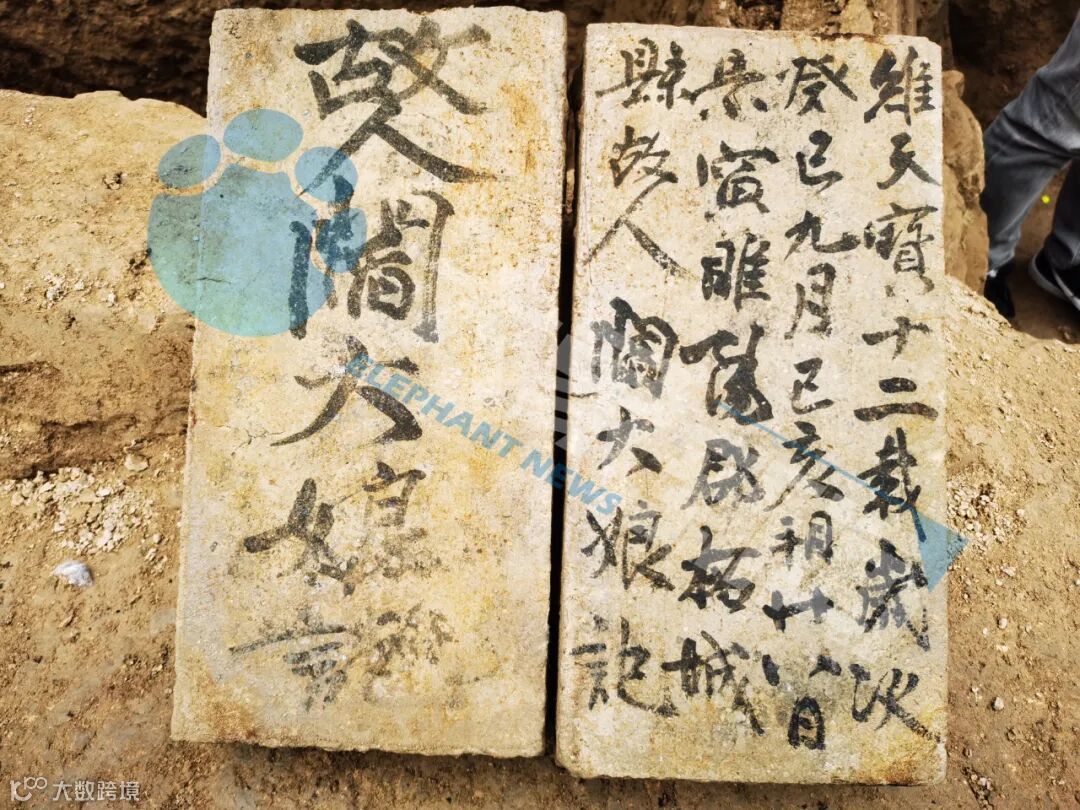 維天寶十二載歲次
癸巳九月己亥朔廿八日
景寅睢陽郡柘城
縣故人閻大娘記
故人閻大娘
ELEPHANT NEWS
大数跨境